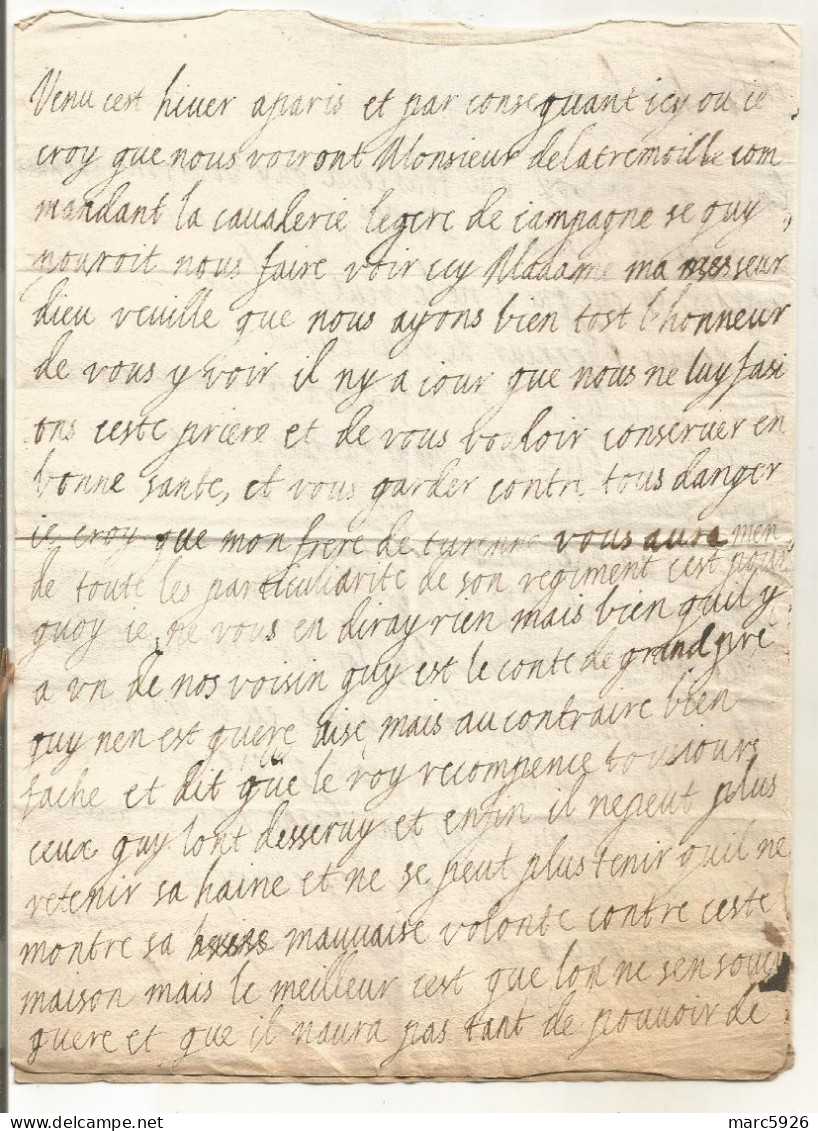 Venu cest hiver aparis et par consequant icy ou ie
croy que nous voiront Monsieur delatremoille com
mandant la cavalerie legere de campagne se quy
pouroit nous faire voir icy Madame ma seur
dieu veuille que nous ayons bien tost lhonneur
de vous y voir il ny a iour que nous ne luy fasi
ons ceste priere et de vous vouloir conserver en
bonne sante, et vous garder contre tous danger
ie croy que mon frere de turenne vous aura men
de toute les particularite de son regiment cest pour
quoy ie ne vous en diray rien mais bien quil y
a vn de nos voisin quy est le conte de grand pre
quy nen est guere aise, mais au contraire bien
fache et dit que le roy recompence tousiours
ceux quy lont desseruy et enfin il nepeut plus
retenir sa haine et ne se peut plus tenir quil ne
montre sa mauvaise volonte contre ceste
maison mais le meilleur cest que lon ne sen soucy
guere et que il naura pas tant de pouvoir de
marc5926